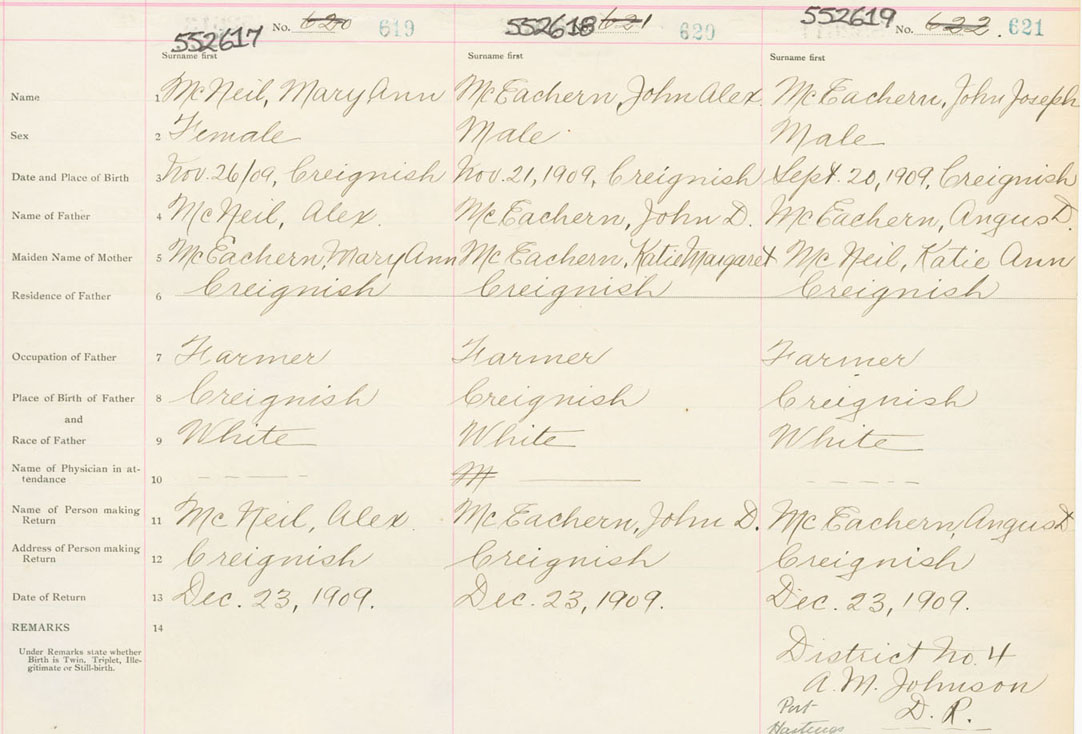 552617 No. 620 619 552618 621 620 552619 No. 622. 621
Surname first Surname first Surname first
Name 1 McNeil, Mary Ann McEachern, John Alex. McEachern, John Joseph
Sex 2 Female Male Male
Date and Place of Birth 3 Nov. 26/09, Creignish Nov. 21, 1909, Creignish Sept. 20, 1909, Creignish
Name of Father 4 McNeil, Alex. McEachern, John D. McEachern, Angus D.
Maiden Name of Mother 5 McEachern, Mary Ann McEachern, Katie Margaret McNeil, Katie Ann
Residence of Father 6 Creignish Creignish Creignish
Occupation of Father 7 Farmer Farmer Farmer
Place of Birth of Father 8 Creignish Creignish Creignish
and
Race of Father 9 White White White
Name of Physician in at-
tendance 10 M
Name of Person making
Return 11 McNeil, Alex. McEachern, John D. McEachern, Angus D
Address of Person making
Return 12 Creignish Creignish Creignish
Date of Return 13 Dec. 23, 1909. Dec. 23, 1909. Dec. 23, 1909.
REMARKS 14
Under Remarks state whether
Birth is Twin, Triplet, Ille-
gitimate or Still-birth.
District No. 4
A. M. Johnson
Port D. R.
Hastings